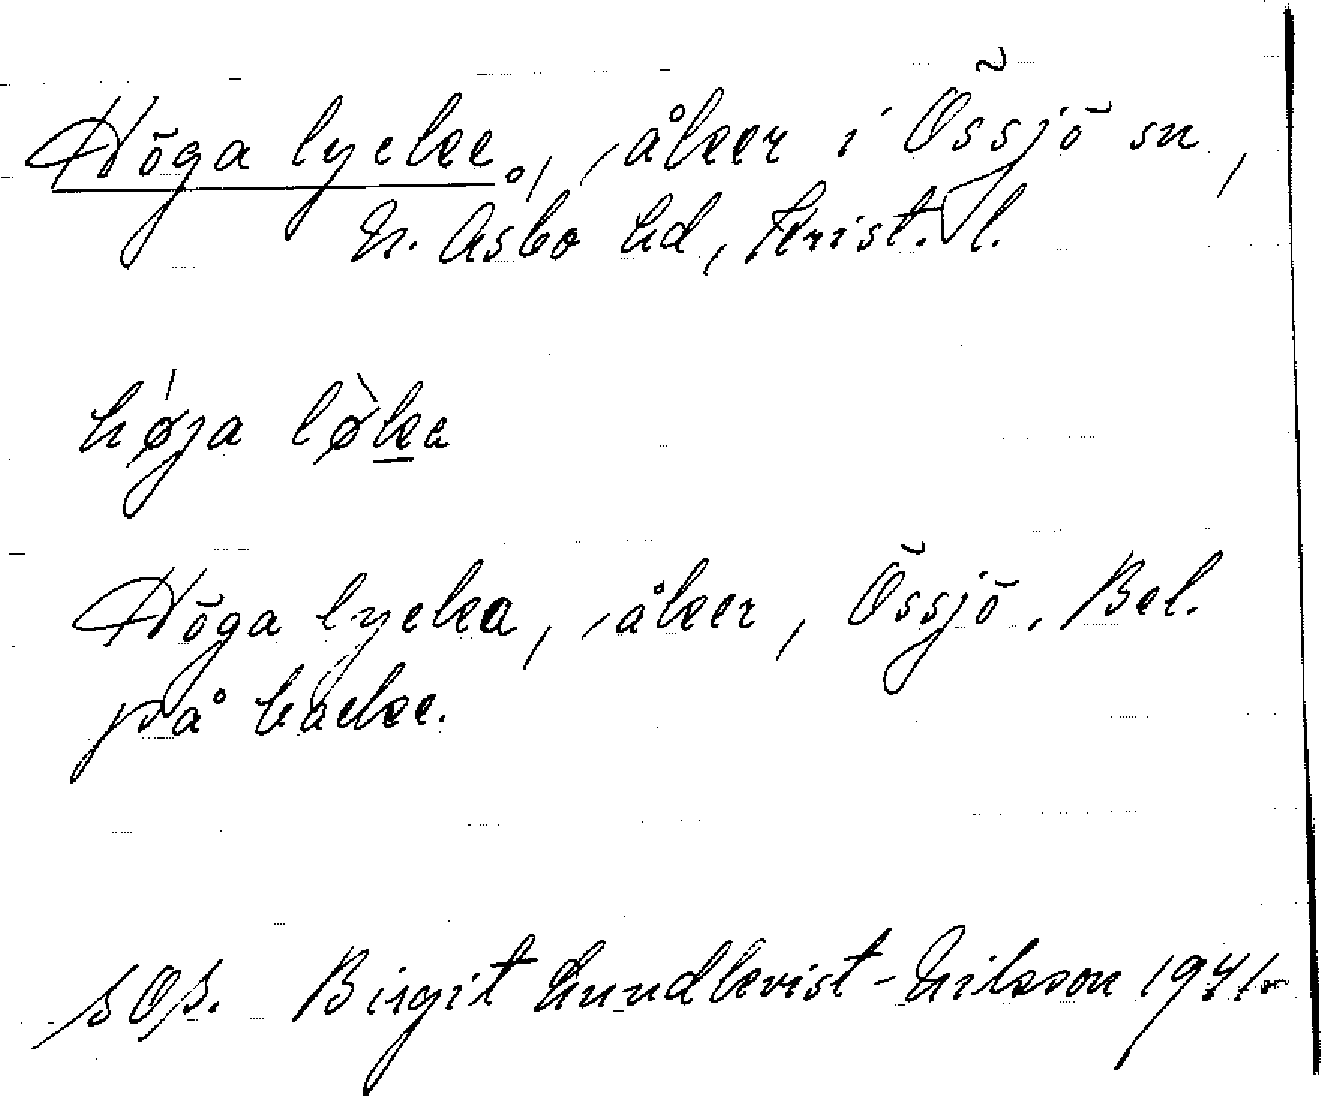 Höga lycke, åker i Össjö sn,
N. Åsbo hd, Krist. l.
høja løke
Höga lycka, åker, Össjö. Bel.
på backe.
Birgit Lundkvist-Nilsson 1941